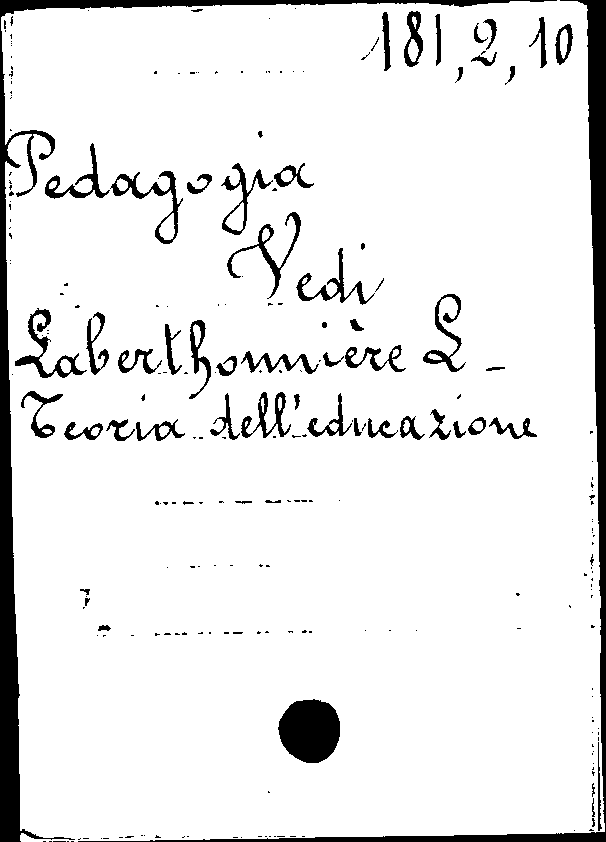 181,2,10
Pedagogia
Vedi
Laberthonnière L -
Teoria dell'educazione